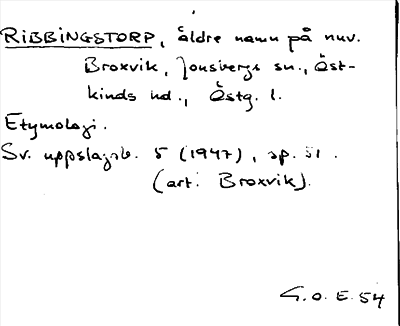 RIBBINGSTORP, äldre namn på nuv.
Broxvik, Jonsbergs sn., Öst-
kinds hd., Östg. l.
Etymologi.
Sv. uppslagsb. 5 (1947), sp. 51.
(art. Broxvik).
G.O.E. 54